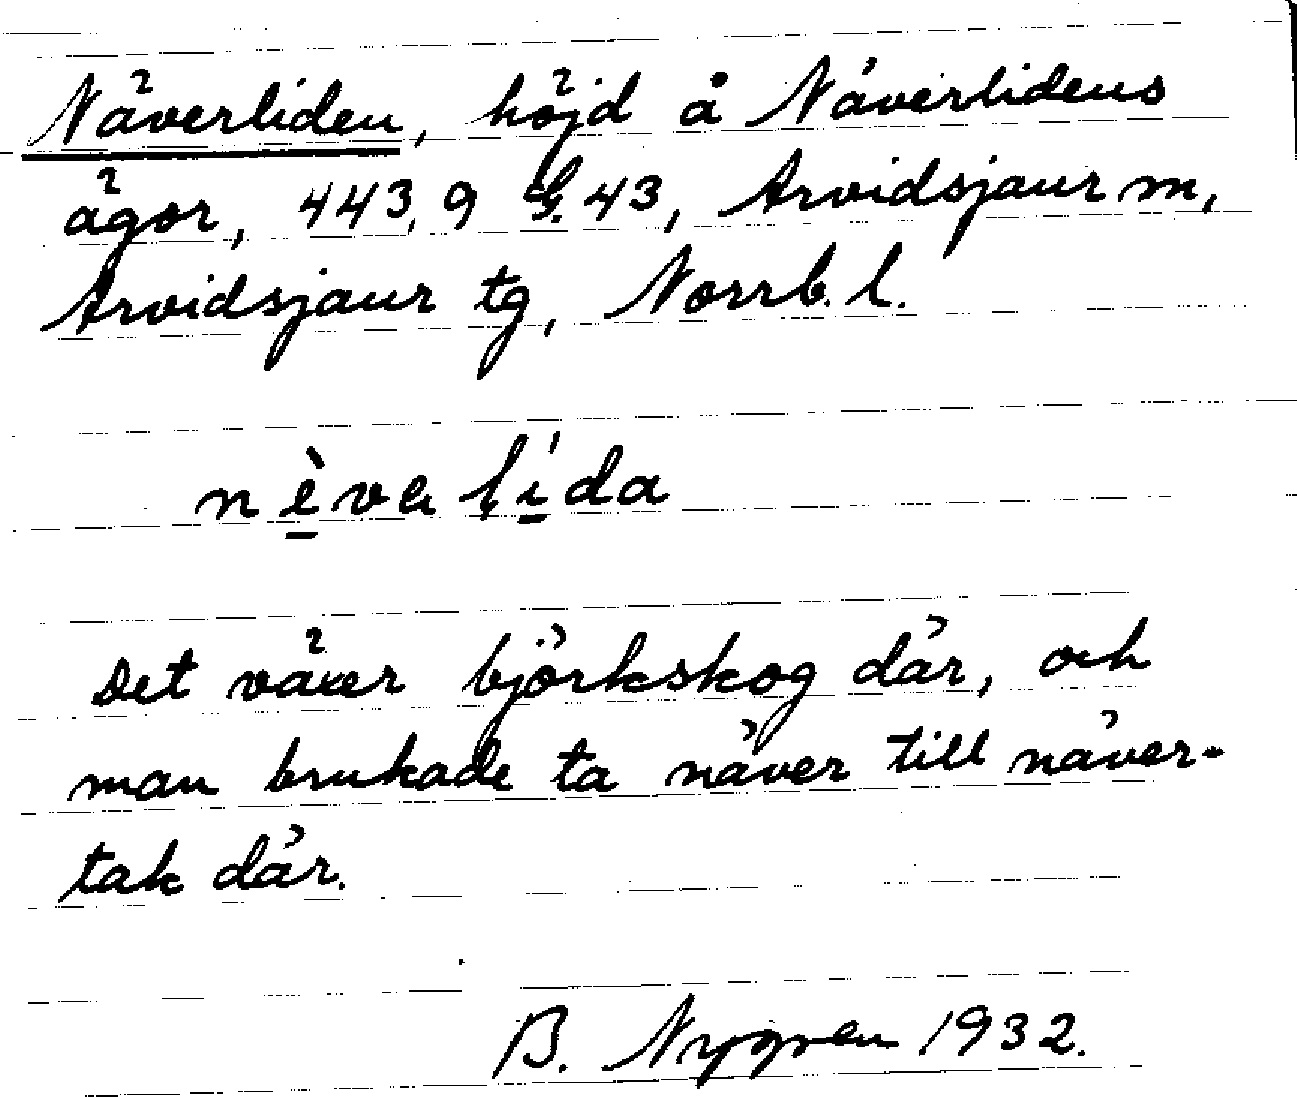 Näverliden, höjd å Näverlidens
ägor, 443,9 G. 43, Arvidsjaur m,
Arvidsjaur tg, Norrb. l.
nèva lída
Det växer björkskog där, och
man brukade ta näver till näver-
tak där.
B. Nygren 1932.